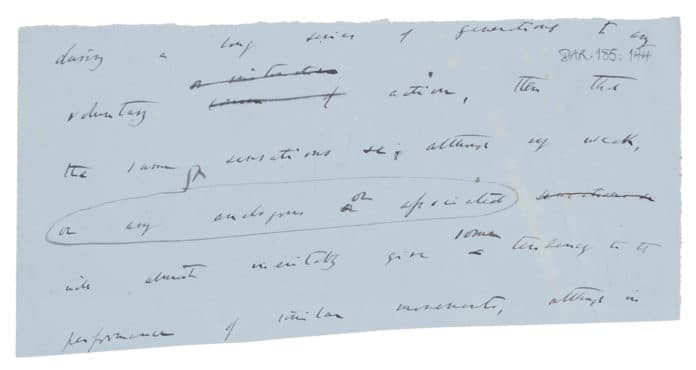 during a long series of generations to any
DAR. 185: 144
voluntary action, then the
the same sensations &c, although very weak,
or any analogous or associated
will almost inevitably give some tendency to the
performance of similar movements, although in